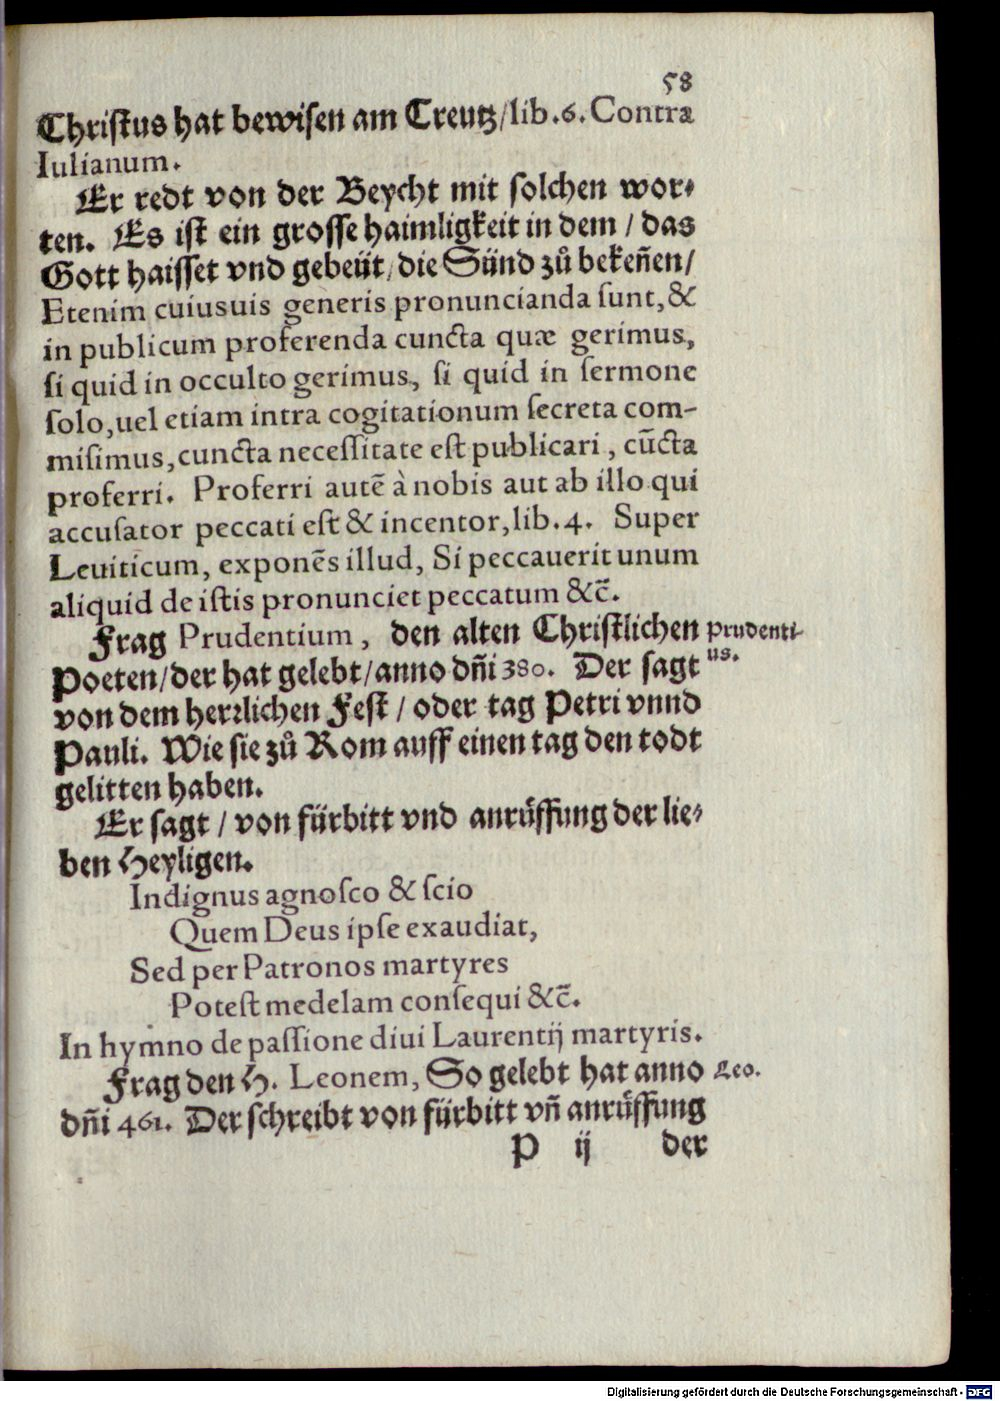 58
Christus hat bewisen am Creutz/lib.6.Contra
Iulianum.
Er redt von der Beycht mit solchen wor⸗
ten. Es ist ein grosse haimligkeit in dem / das
Gott haisset vnd gebeüt/die Sünd zů bekeñen/
Etenim cuiusuis generis pronuncianda sunt,&
in publicum proferenda cuncta quæ gerimus,
si quid in occulto gerimus, si quid in sermone
solo,uel etiam intra cogitationum secreta com-
misimus,cuncta necessitate est publicari, cūcta
proferri. Proferri autē à nobis aut ab illo qui
accusator peccati est & incentor,lib.4. Super
Leuiticum, exponēs illud, Si peccauerit unum
aliquid de istis pronunciet peccatum &c̄.
Frag Prudentium, den alten Christlichen
Prudenti-
us.
Poeten/der hat gelebt/anno dñi 380. Der sagt
von dem herrlichen Fest / oder tag Petri vnnd
Pauli. Wie sie zů Rom auff einen tag den todt
gelitten haben.
Er sagt / von fürbitt vnd anrůffung der lie⸗
ben Heyligen.
Indignus agnosco & scio
Quem Deus ipse exaudiat,
Sed per Patronos martyres
Potest medelam consequi &c̄.
In hymno de passione diui Laurentij martyris.
Frag den H. Leonem, So gelebt hat anno
Leo.
dñi 461. Der schreibt von fürbitt vñ anrůffung
P ij der
Digitalisierung gefördert durch die Deutsche Forschungsgemeinschaft - DFG